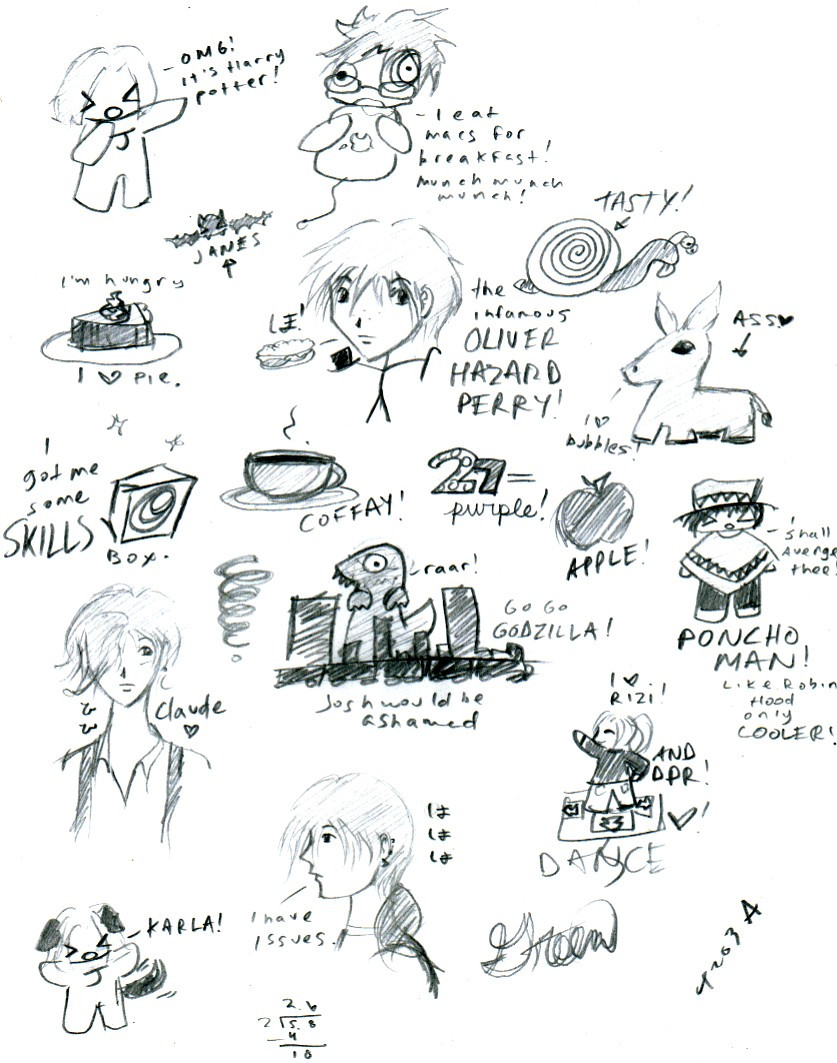 -OMG!
it's Harry
potter!
- I eat
macs for
breakfast!
munch munch
munch!
JANES
TASTY!
I'm hungry
I ♥ pie.
は!
the
infamous
OLIVER
HAZARD
PERRY!
ASS♥
I ♥
bubbles!
I
got me
some
SKILLS
BOX.
COFFAY!
27=
purple!
APPLE!
- I
shall
Avenge
thee!
PONCHO
MAN!
Like Robin
Hood
only
COOLER!
raar!
GO GO
GODZILLA!
Josh would be
ashamed
Claude
♥
I ♥
RIZI!
AND
DDR!
♥!
DANCE
は
は
は
I have
issues.
-KARLA!
2.6
2 5.8
-4
18
4203 A